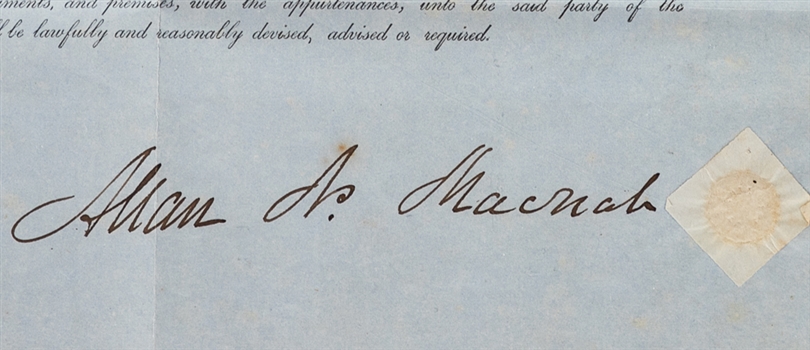 ments, and premises, with the appurtenances, unto the said party of the
l be lawfully and reasonably devised, advised or required.
Allan N. Macnab